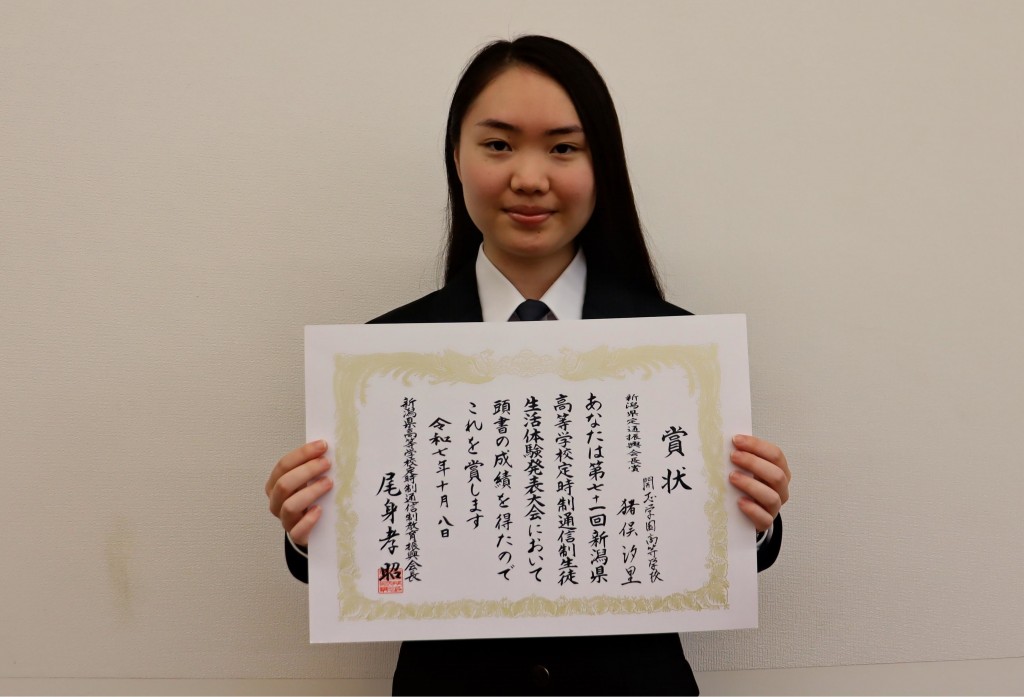 賞状
新潟県定通振興会長賞
開志学園高等学校
猪俣汐里
あなたは第七十一回新潟県
高等学校定時制通信制生徒
生活体験発表大会において
頭書の成績を得たので
これを賞します
令和七年十月八日
新潟県高等学校定時制通信制教育振興会長
尾身孝昭